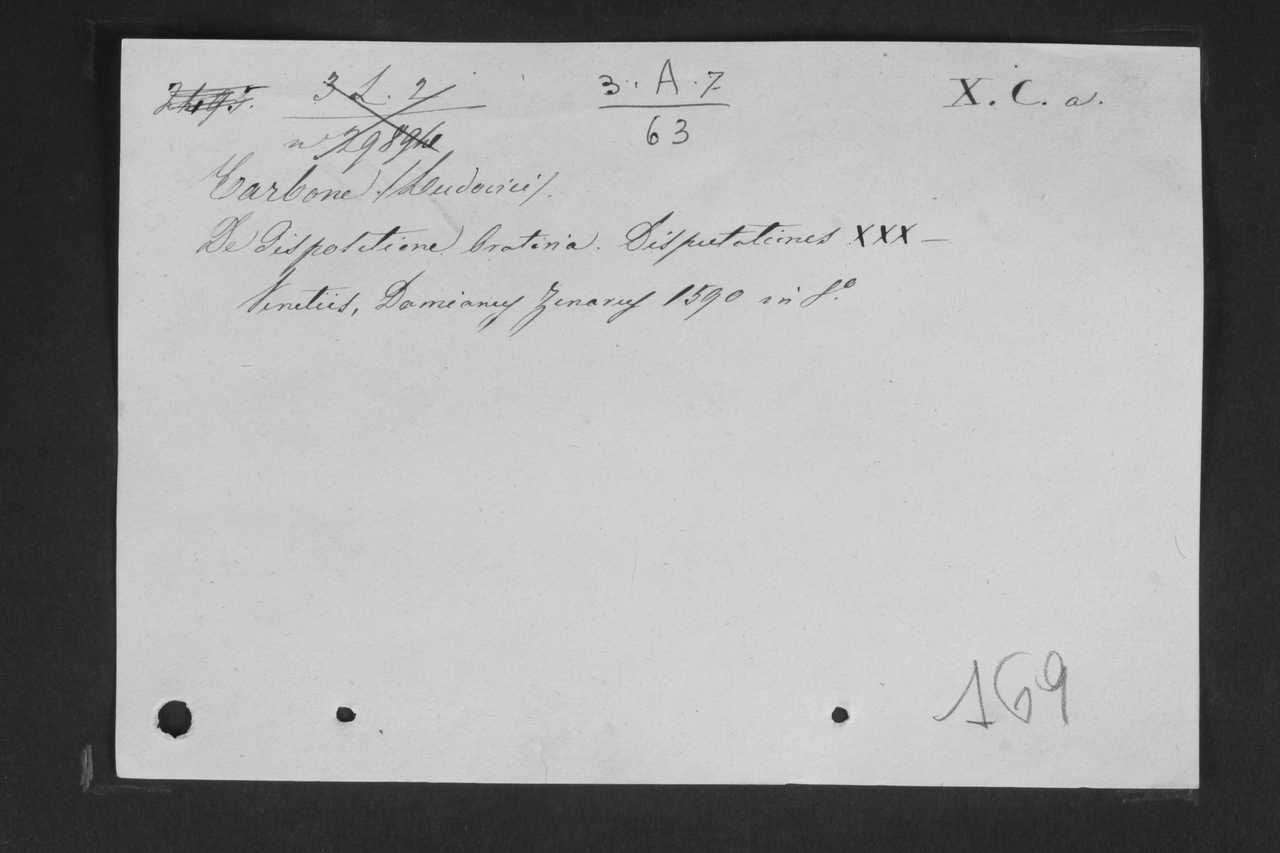 2495. 3 L. 2 3. A. 7 X. C. a.
n° 29894 63
Carbone (Ludovici).
De dispositione Oratoria. Disputationes XXX –
Venetiis, Damianus Zenarus 1590 in 8.°
169